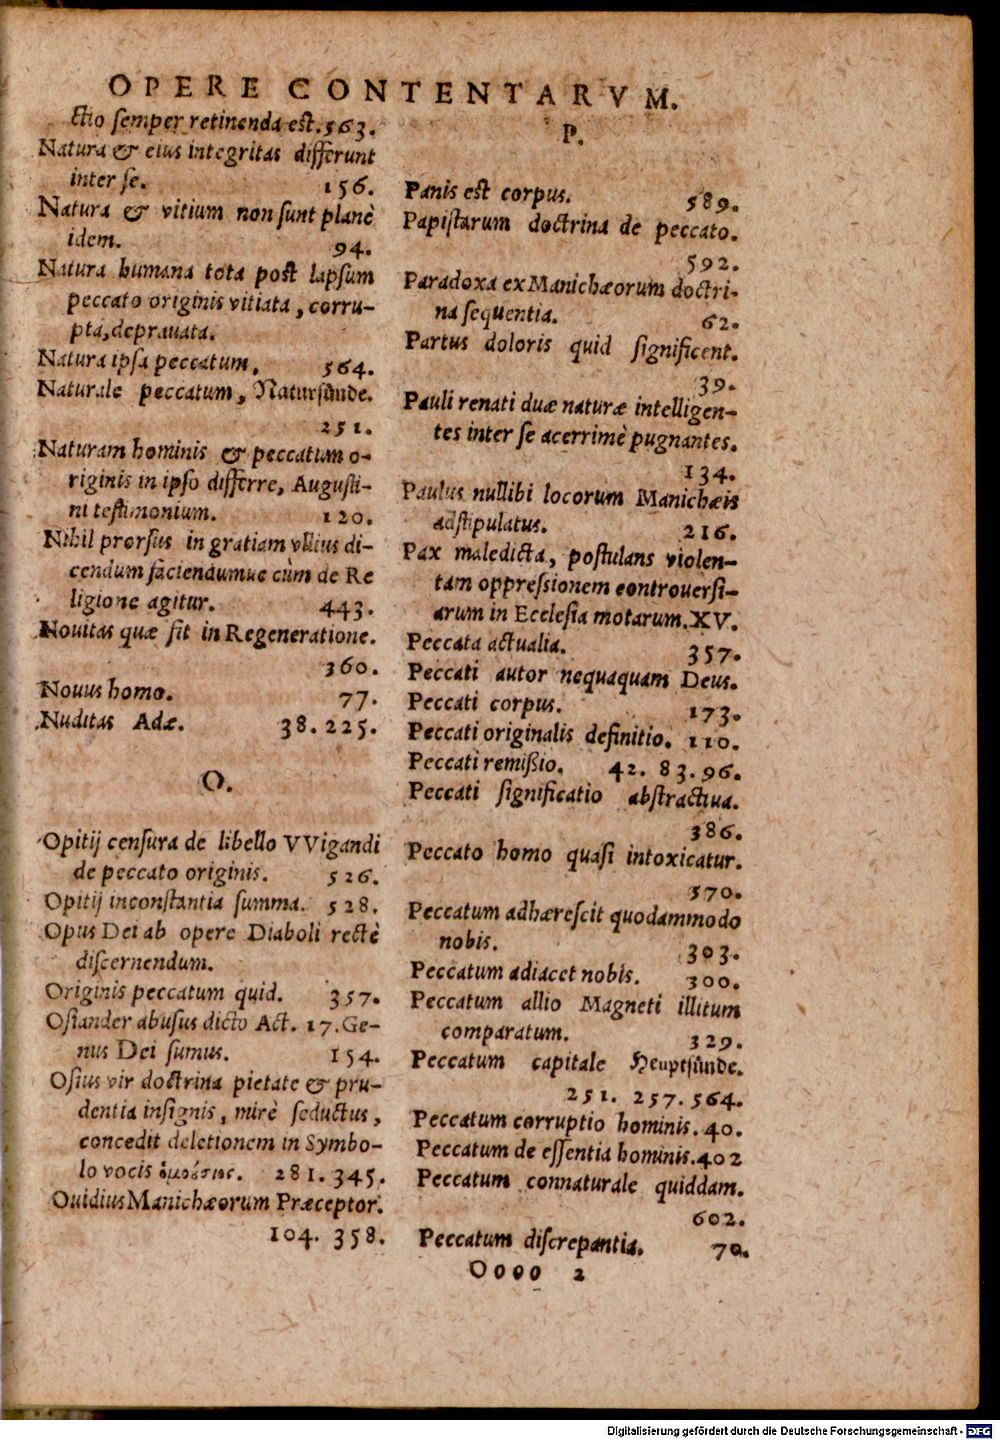 OPERE CONTENTARVM.
ctio ſemper retinenda eſt. 563.
Natura & eius integritas differunt
inter ſe. 156.
Natura & vitium non ſunt planè
idem. 94.
Natura humana tota poſt lapſum
peccato originis vitiata, corru-
pta, deprauata.
Natura ipſa peccatum. 564.
Naturale peccatum, Naturſünde.
251.
Naturam hominis & peccatum o-
riginis in ipſo differre, Auguſti-
ni teſtimonium. 120.
Nihil prorſus in gratiam vllius di-
cendum faciendumue cùm de Re
ligione agitur. 443.
Nouitas quæ ſit in Regeneratione.
360.
Nouus homo. 77.
Nuditas Adæ. 38. 225.
O.
Opitij cenſura de libello VVigandi
de peccato originis. 526.
Opitij inconſtantia ſumma. 528.
Opus Dei ab opere Diaboli rectè
diſcernendum.
Originis peccatum quid. 357.
Oſiander abuſus dicto Act. 17. Ge-
nus Dei ſumus. 154.
Oſius vir doctrina pietate & pru-
dentia inſignis, mirè ſeductus,
concedit deletionem in Symbo-
lo vocis ὁμοούσιος. 281. 345.
Ouidius Manichæorum Præceptor.
104. 358.
P.
Panis eſt corpus. 589.
Papiſtarum doctrina de peccato.
592.
Paradoxa ex Manichæorum doctri-
na ſequentia. 62.
Partus doloris quid ſignificent.
39.
Pauli renati duæ naturæ intelligen-
tes inter ſe acerrimè pugnantes.
134.
Paulus nullibi locorum Manichæis
adſtipulatus. 216.
Pax maledicta, poſtulans violen-
tam oppreſsionem controuerſi-
arum in Eccleſia motarum. XV.
Peccata actualia. 357.
Peccati autor nequaquam Deus.
Peccati corpus. 173.
Peccati originalis definitio. 110.
Peccati remißio. 42. 83. 96.
Peccati ſignificatio abſtractiua.
386.
Peccato homo quaſi intoxicatur.
570.
Peccatum adhæreſcit quodammodo
nobis. 303.
Peccatum adiacet nobis. 300.
Peccatum allio Magneti illitum
comparatum. 329.
Peccatum capitale Heuptſünde.
251. 257. 564.
Peccatum corruptio hominis. 40.
Peccatum de eſſentia hominis. 402
Peccatum connaturale quiddam.
602.
Peccatum diſcrepantia. 70.
Oooo 2
Digitalisierung gefördert durch die Deutsche Forschungsgemeinschaft - DFG